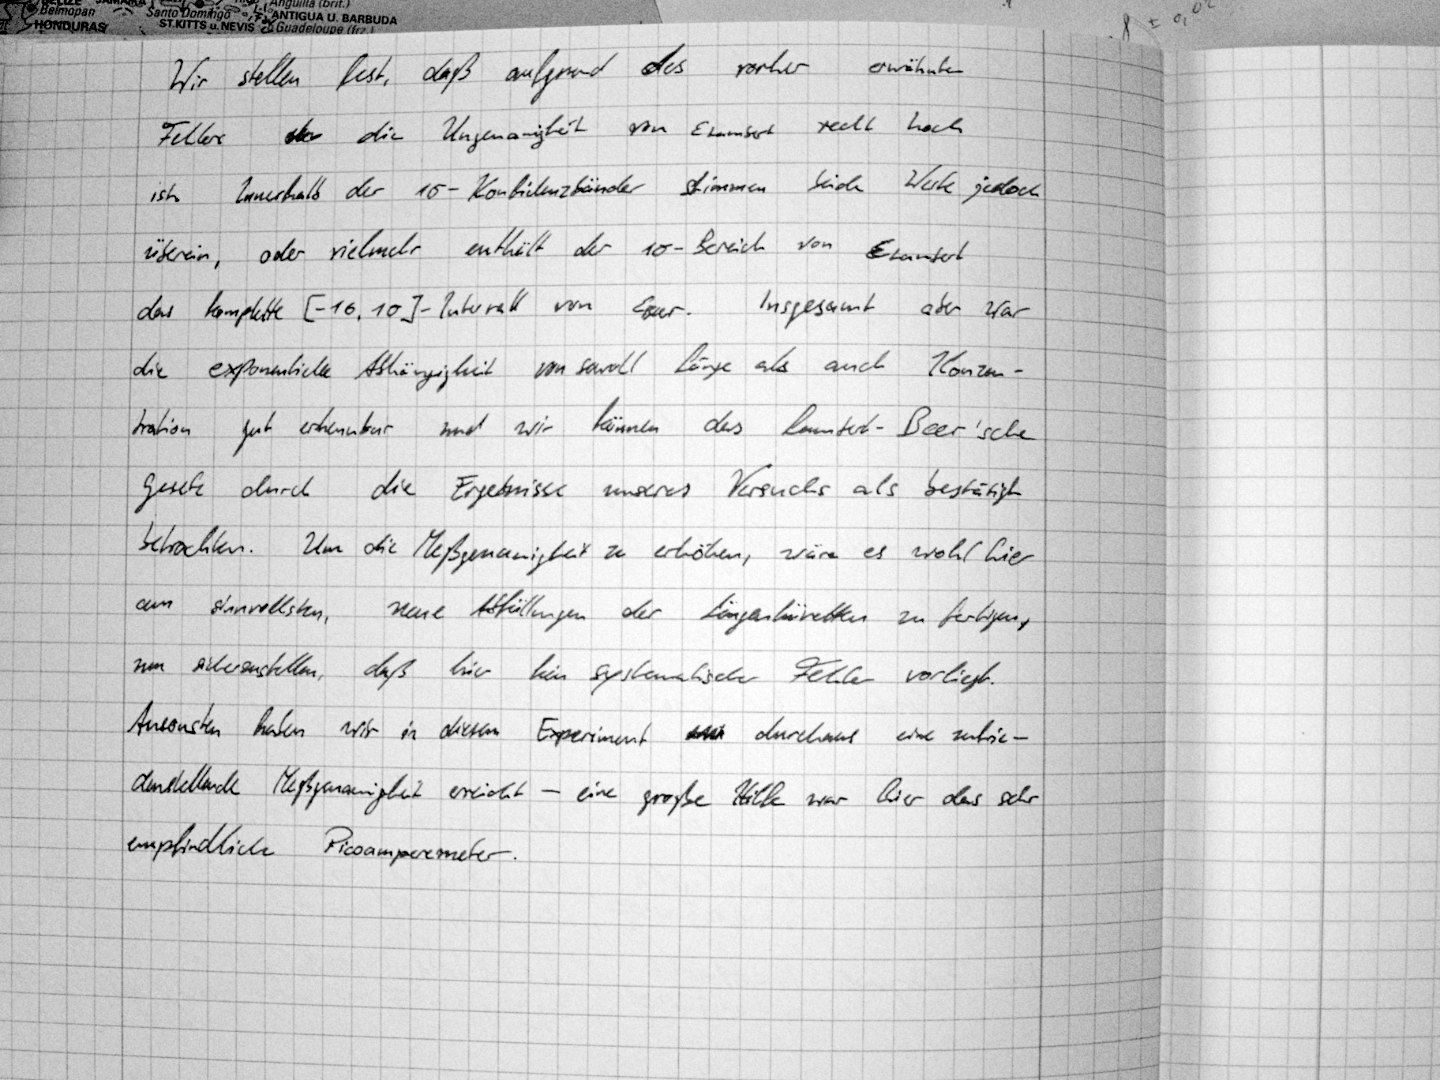 BELIZE JAMAIKA Anguilla (brit.)
Belmopan Santo Domingo ANTIGUA U. BARBUDA
HONDURAS ST.KITTS u. NEVIS Guadeloupe (frz.)
8 ± 0,02
Wir stellen fest, daß aufgrund des vorher erwähnten
Fehlers die Ungenauigkeit von ε Lambert recht hoch
ist. Innerhalb der 1σ-Konfidenzbänder stimmen beide Werte jedoch
überein, oder vielmehr enthält der 1σ-Bereich von ε Lambert
das komplette [-1σ, 1σ]-Intervall von ε Beer. Insgesamt aber war
die exponentielle Abhängigkeit von sowohl Länge als auch Konzen-
tration gut erkennbar und wir können das Lambert-Beer'sche
Gesetz durch die Ergebnisse unseres Versuchs als bestätigt
betrachten. Um die Meßgenauigkeit zu erhöhen, wäre es wohl hier
am sinnvollsten, neue Abfüllungen der Längenküvetten zu fertigen,
um sicherzustellen, daß hier kein systematischer Fehler vorliegt.
Ansonsten haben wir in diesem Experiment durchaus eine zufrie-
denstellende Meßgenauigkeit erreicht – eine große Hilfe war hier das sehr
empfindliche Picoamperemeter.